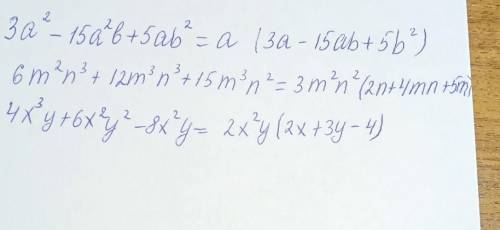 3a² - 15a²b + 5ab² = a (3a - 15ab + 5b²)
6m²n³ + 12m³n³ + 15m³n² = 3m²n²(2n + 4mn + 5m)
4x³y + 6x²y² - 8x²y = 2x²y(2x + 3y - 4)